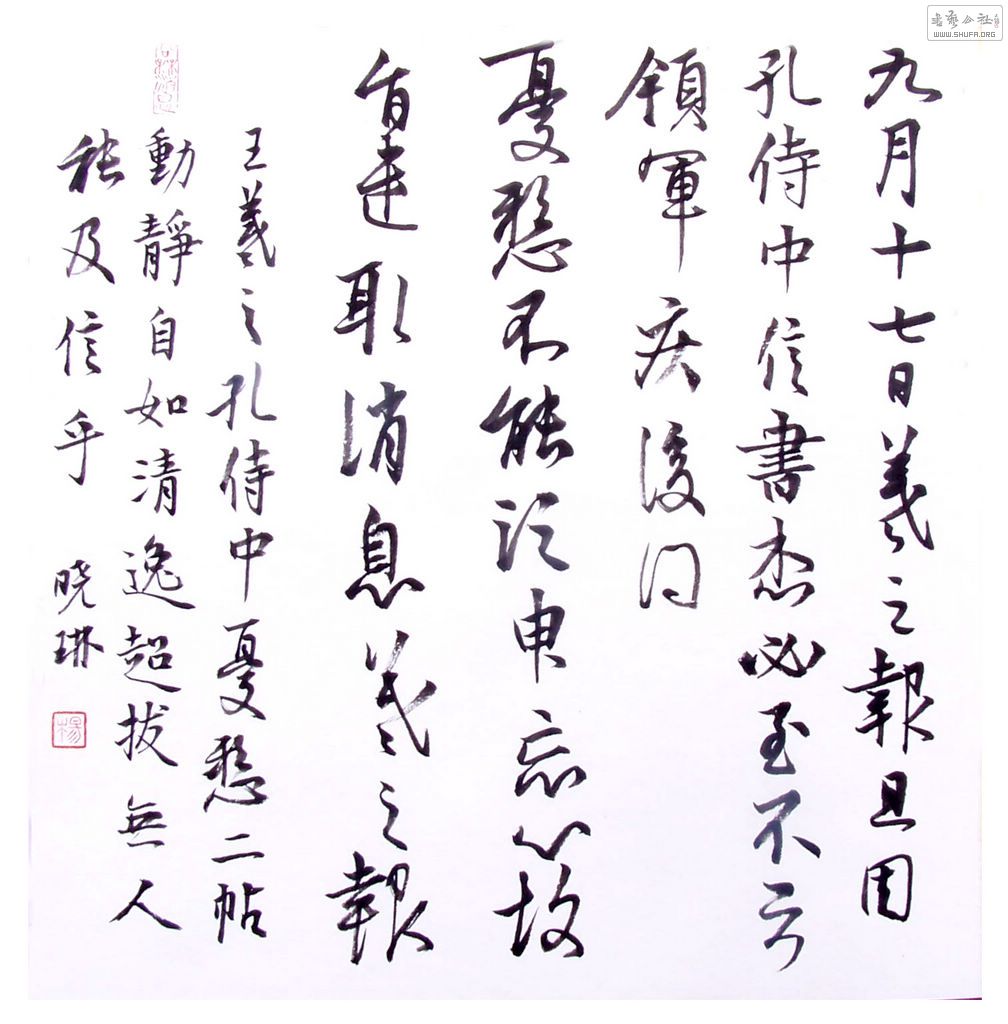 書藝公社
WWW.SHUFA.ORG
九月十七日羲之報且因
孔侍中信書想必至不知
領軍疾後問
憂懸不能須臾忘心故
旨遣取消息羲之報
王羲之孔侍中憂懸二帖
動靜自如清逸超拔無人
能及信乎 晓琳
楊